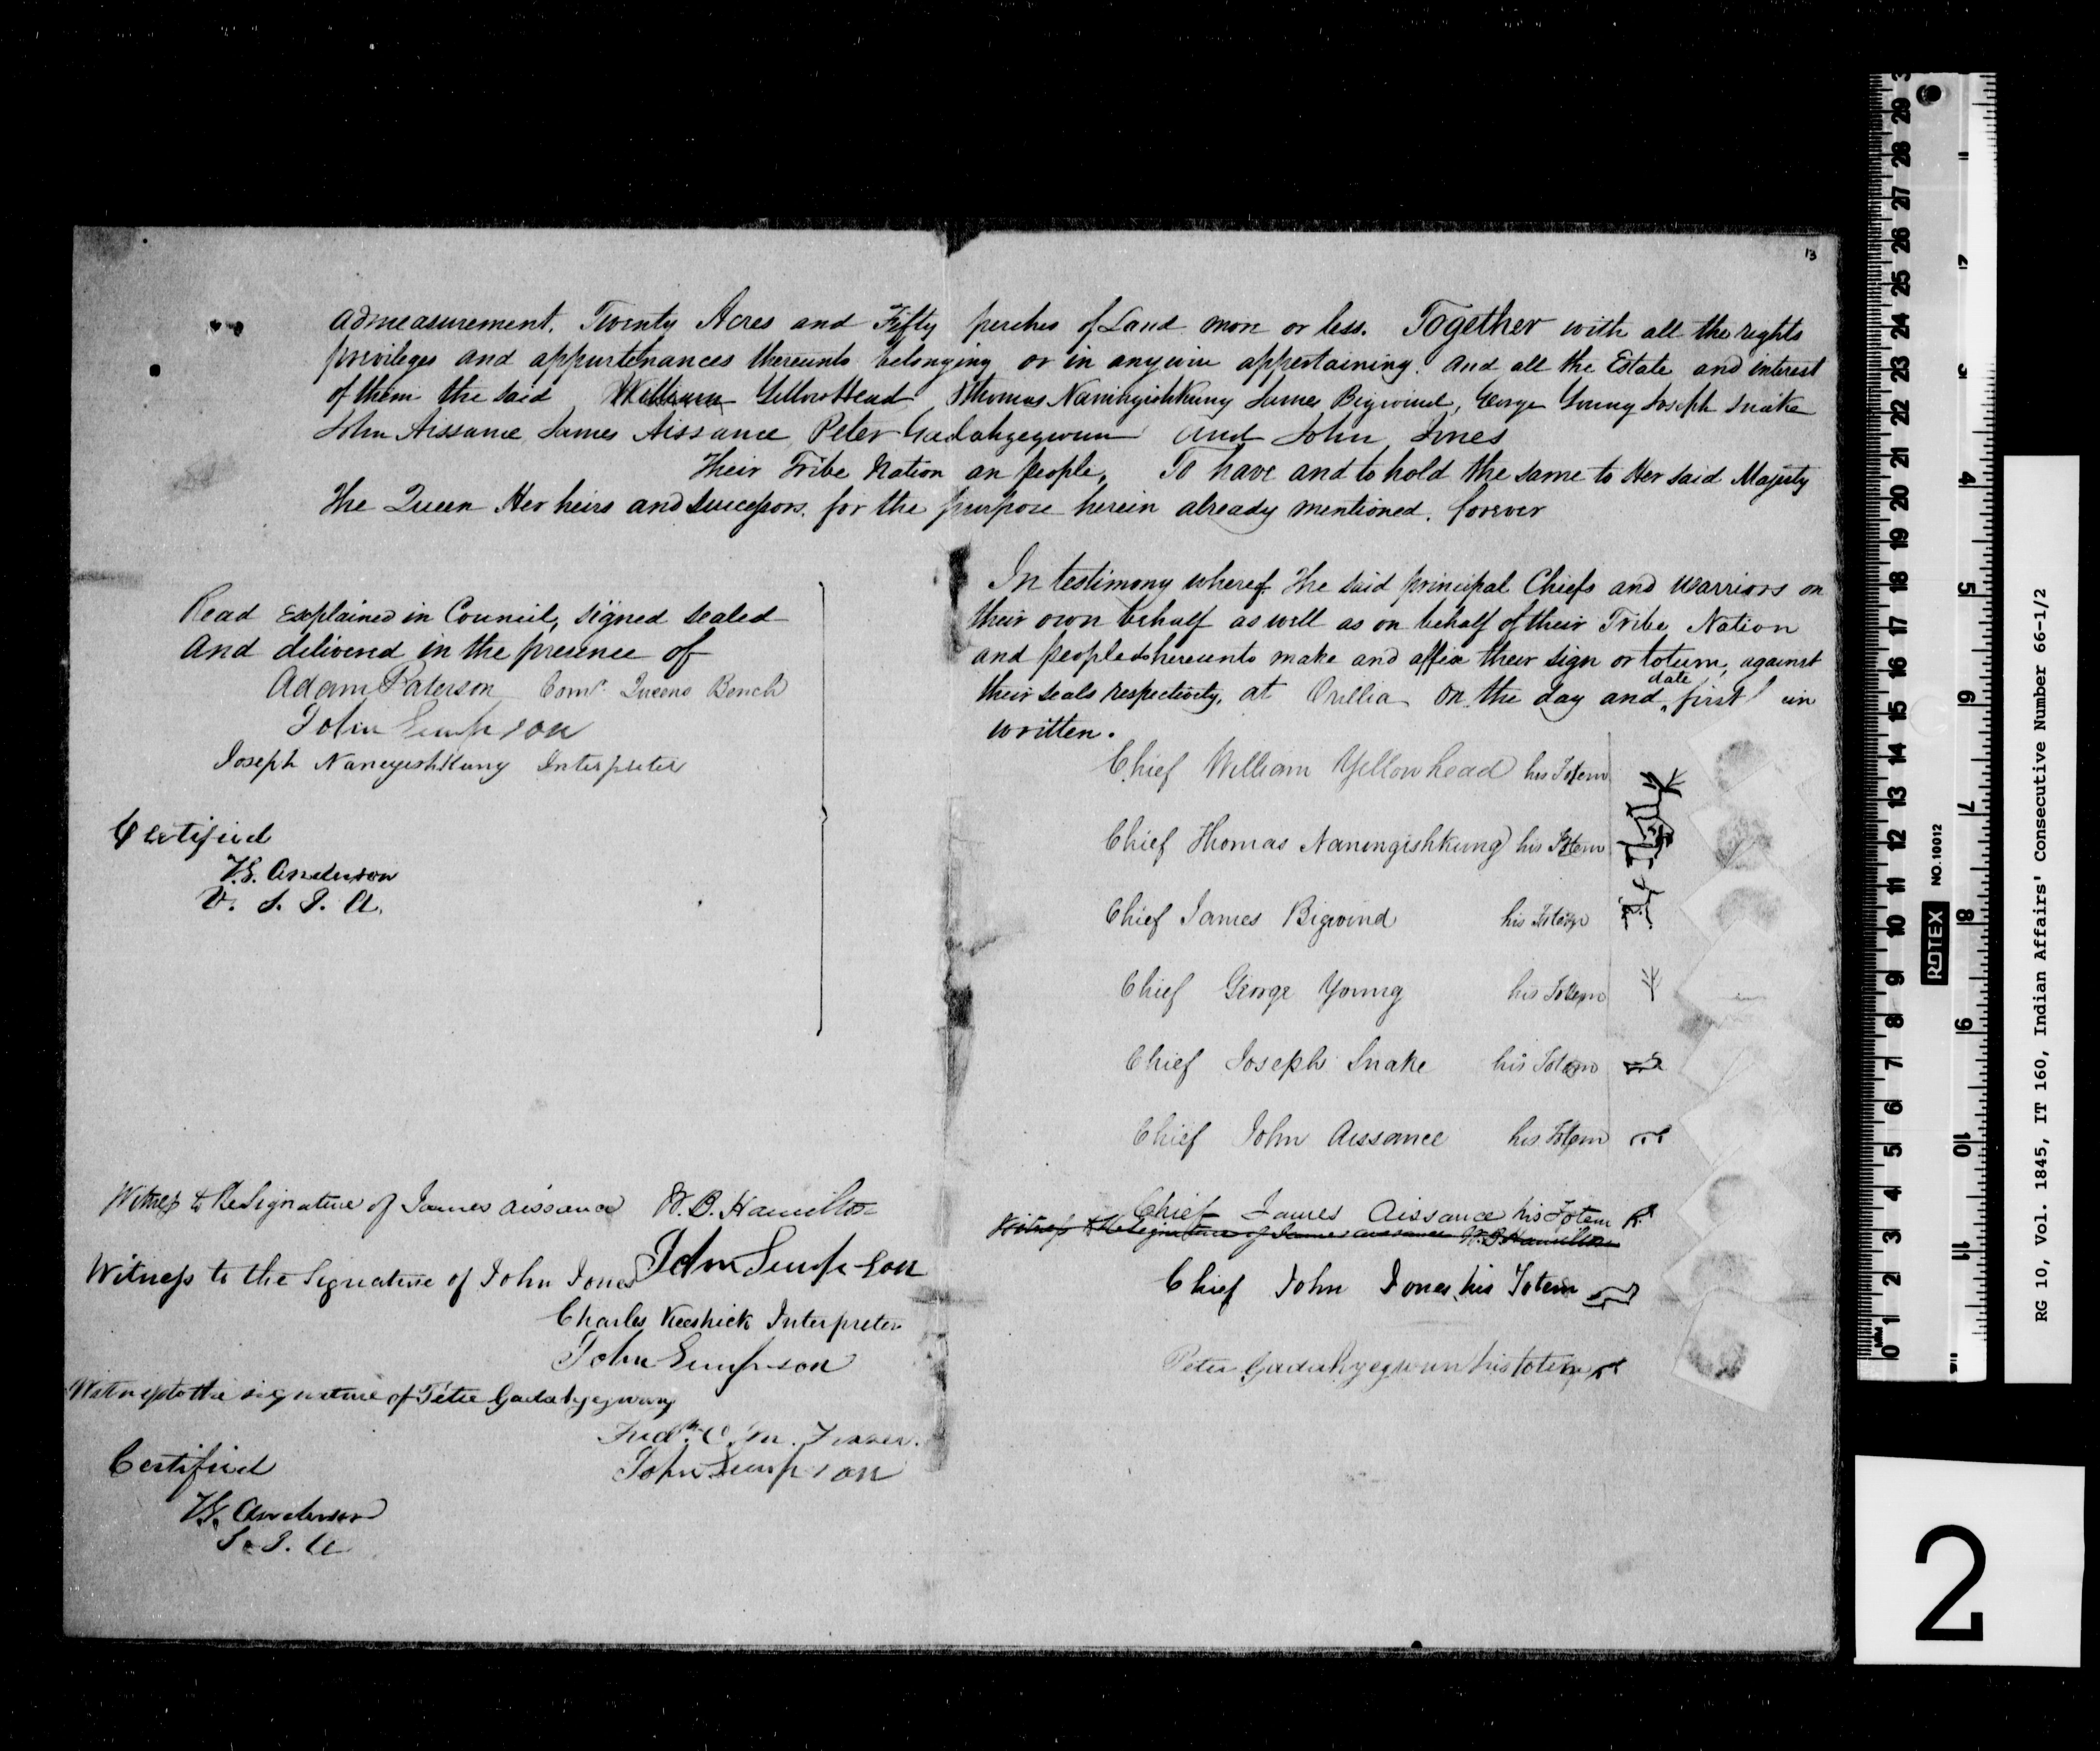 13
admeasurement. Twenty Acres and Fifty perches of Land more or less. Together with all the rights
privileges and appurtenances thereunto belonging or in anywise appertaining. And all the Estate and interest
of them the said William YellowHead Thomas Naningishkung James Bigwind, George Young Joseph Snake
John Aissance James Aissance Peter Gadahgegwun and John Jones
Their Tribe Nation an people, To have and to hold the same to Her said Majesty
the Queen Her heirs and successors. for the purpose herein already mentioned. forever
In testimony whereof the said principal Chiefs and warriors on
their own behalf as well as on behalf of their Tribe Nation
and people do hereunto make and affix their sign or totum, against
their seals respectivly, at Orillia on the day and date first in
written.
Read Explained in Council, signed sealed
And delivered in the presence of
Adam Paterson Comr. Queens Bench
John Simpson
Joseph Naneyishkung Interpreter
Certified
T.G. Anderson
V. S. I. A.
Chief William Yellowhead his Totem
Chief Thomas Naningishkung his Totem
Chief James Bigwind his Totem
Chief George Young his Totem
Chief Joseph Snake his Totem
Chief John Aissance his Totem
Chief James Aissance his Totem
Witness to the Signature of James Aissance W.B. Hamilton
Chief John Jones his Totem
Peter Gadahgegwun his totem
Witness to the Signature of James Aissance W.B. Hamilton
John Simpson
Witness to the Signature of John Jones
Charles Keeshick Interpreter
John Simpson
Witness to the signature of Peter Gadahgegwun
Fredk. C. M. Fraser.
John Simpson
Certified
T.G. Anderson
S. I. A
29 28 27 26 25 24 23 22 21 20 19 18 17 16 15 14 13 12 11 10 9 8 7 6 5 4 3 2 1 0
1 2 3 4 5 6 7 8 9 10 11
ROTEX NO. 10012
RG 10, Vol. 1845, IT 160, Indian Affairs' Consecutive Number 66-1/2
2